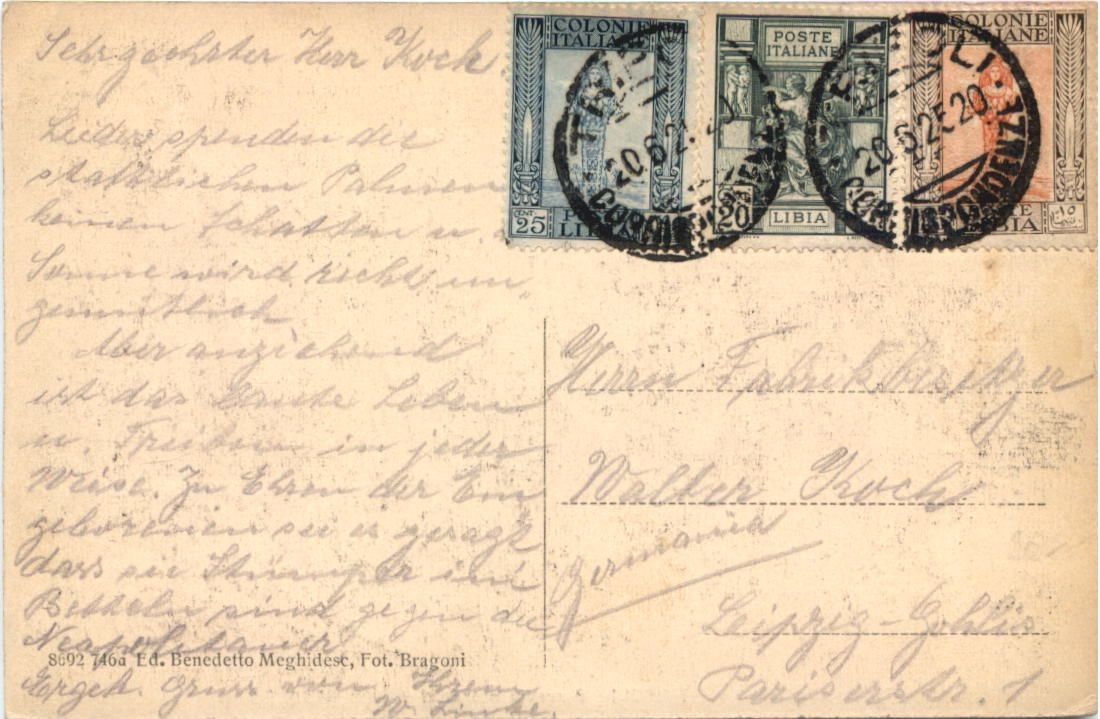 Sehrgeehrter Herr Koch.
Leider spenden der
stattlichen Palmen
keinen Schatten u.
Sonne wird recht un
gemütlich
Aber anziehend
ist das bunte Leben
u. Treiben in jeder
Weise. Zu Ehren der Ein
geborenen sei es gesagt
dass sie Stümper im
Betteln sind gegen die
Neapolitaner
8692 746a Ed. Benedetto Meghidesc, Fot. Bragoni
Ergeb. Gruss von Ihrem
W. Linke.
COLONIE
ITALIANE
CENT. 25
LI
POSTE
ITALIANE
20
LIBIA
COLONIE
ITALIANE
TRIPOLI
20.6.25.20
CORRISPONDENZE
Herrn Fabrikbesitzer
Walter Koch
Germania
Leipzig-Gohlis
Pariserstr. 1